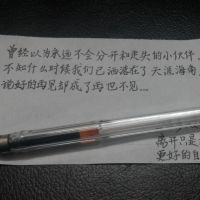 曾经以为永远不会分开和走头的小伙伴.
不知什么时候我们已洒落在了天涯海角.
说好的再见却成了再也不见...
离开只是
更好的自